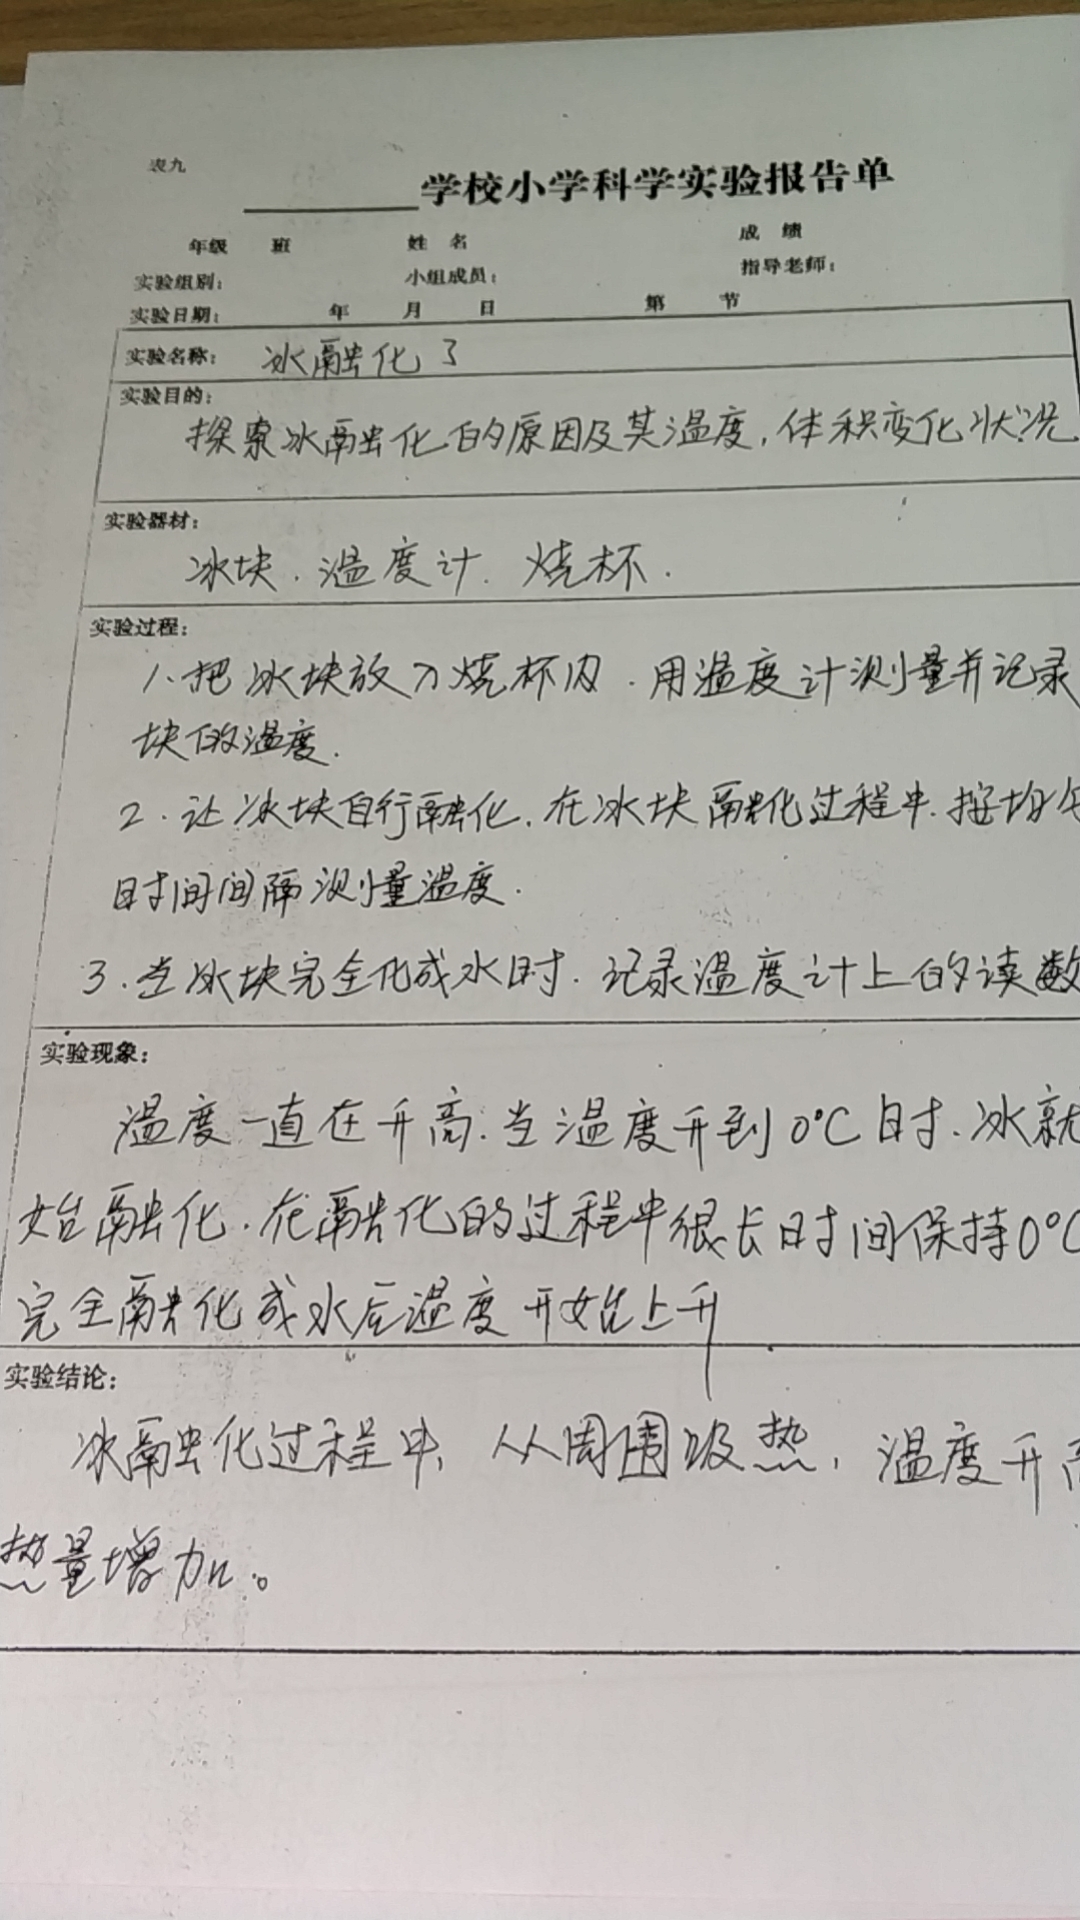 表九
学校小学科学实验报告单
年级 班 姓名 成绩
实验组别: 小组成员: 指导老师:
实验日期: 年 月 日 第 节
实验名称: 冰融化了
实验目的:
探索冰融化的原因及其温度,体积变化状况
实验器材:
冰块.温度计.烧杯.
实验过程:
1.把冰块放入烧杯内.用温度计测量并记录
块的温度.
2.让冰块自行融化.在冰块融化过程中.按均匀
时间间隔测量温度.
3.当冰块完全化成水时.记录温度计上的读数
实验现象:
温度一直在升高.当温度升到0°C时.冰就
始融化.在融化的过程中很长时间保持0°C
完全融化成水后温度开始上升
实验结论:
冰融化过程中,从周围吸热,温度升高
热量增加。